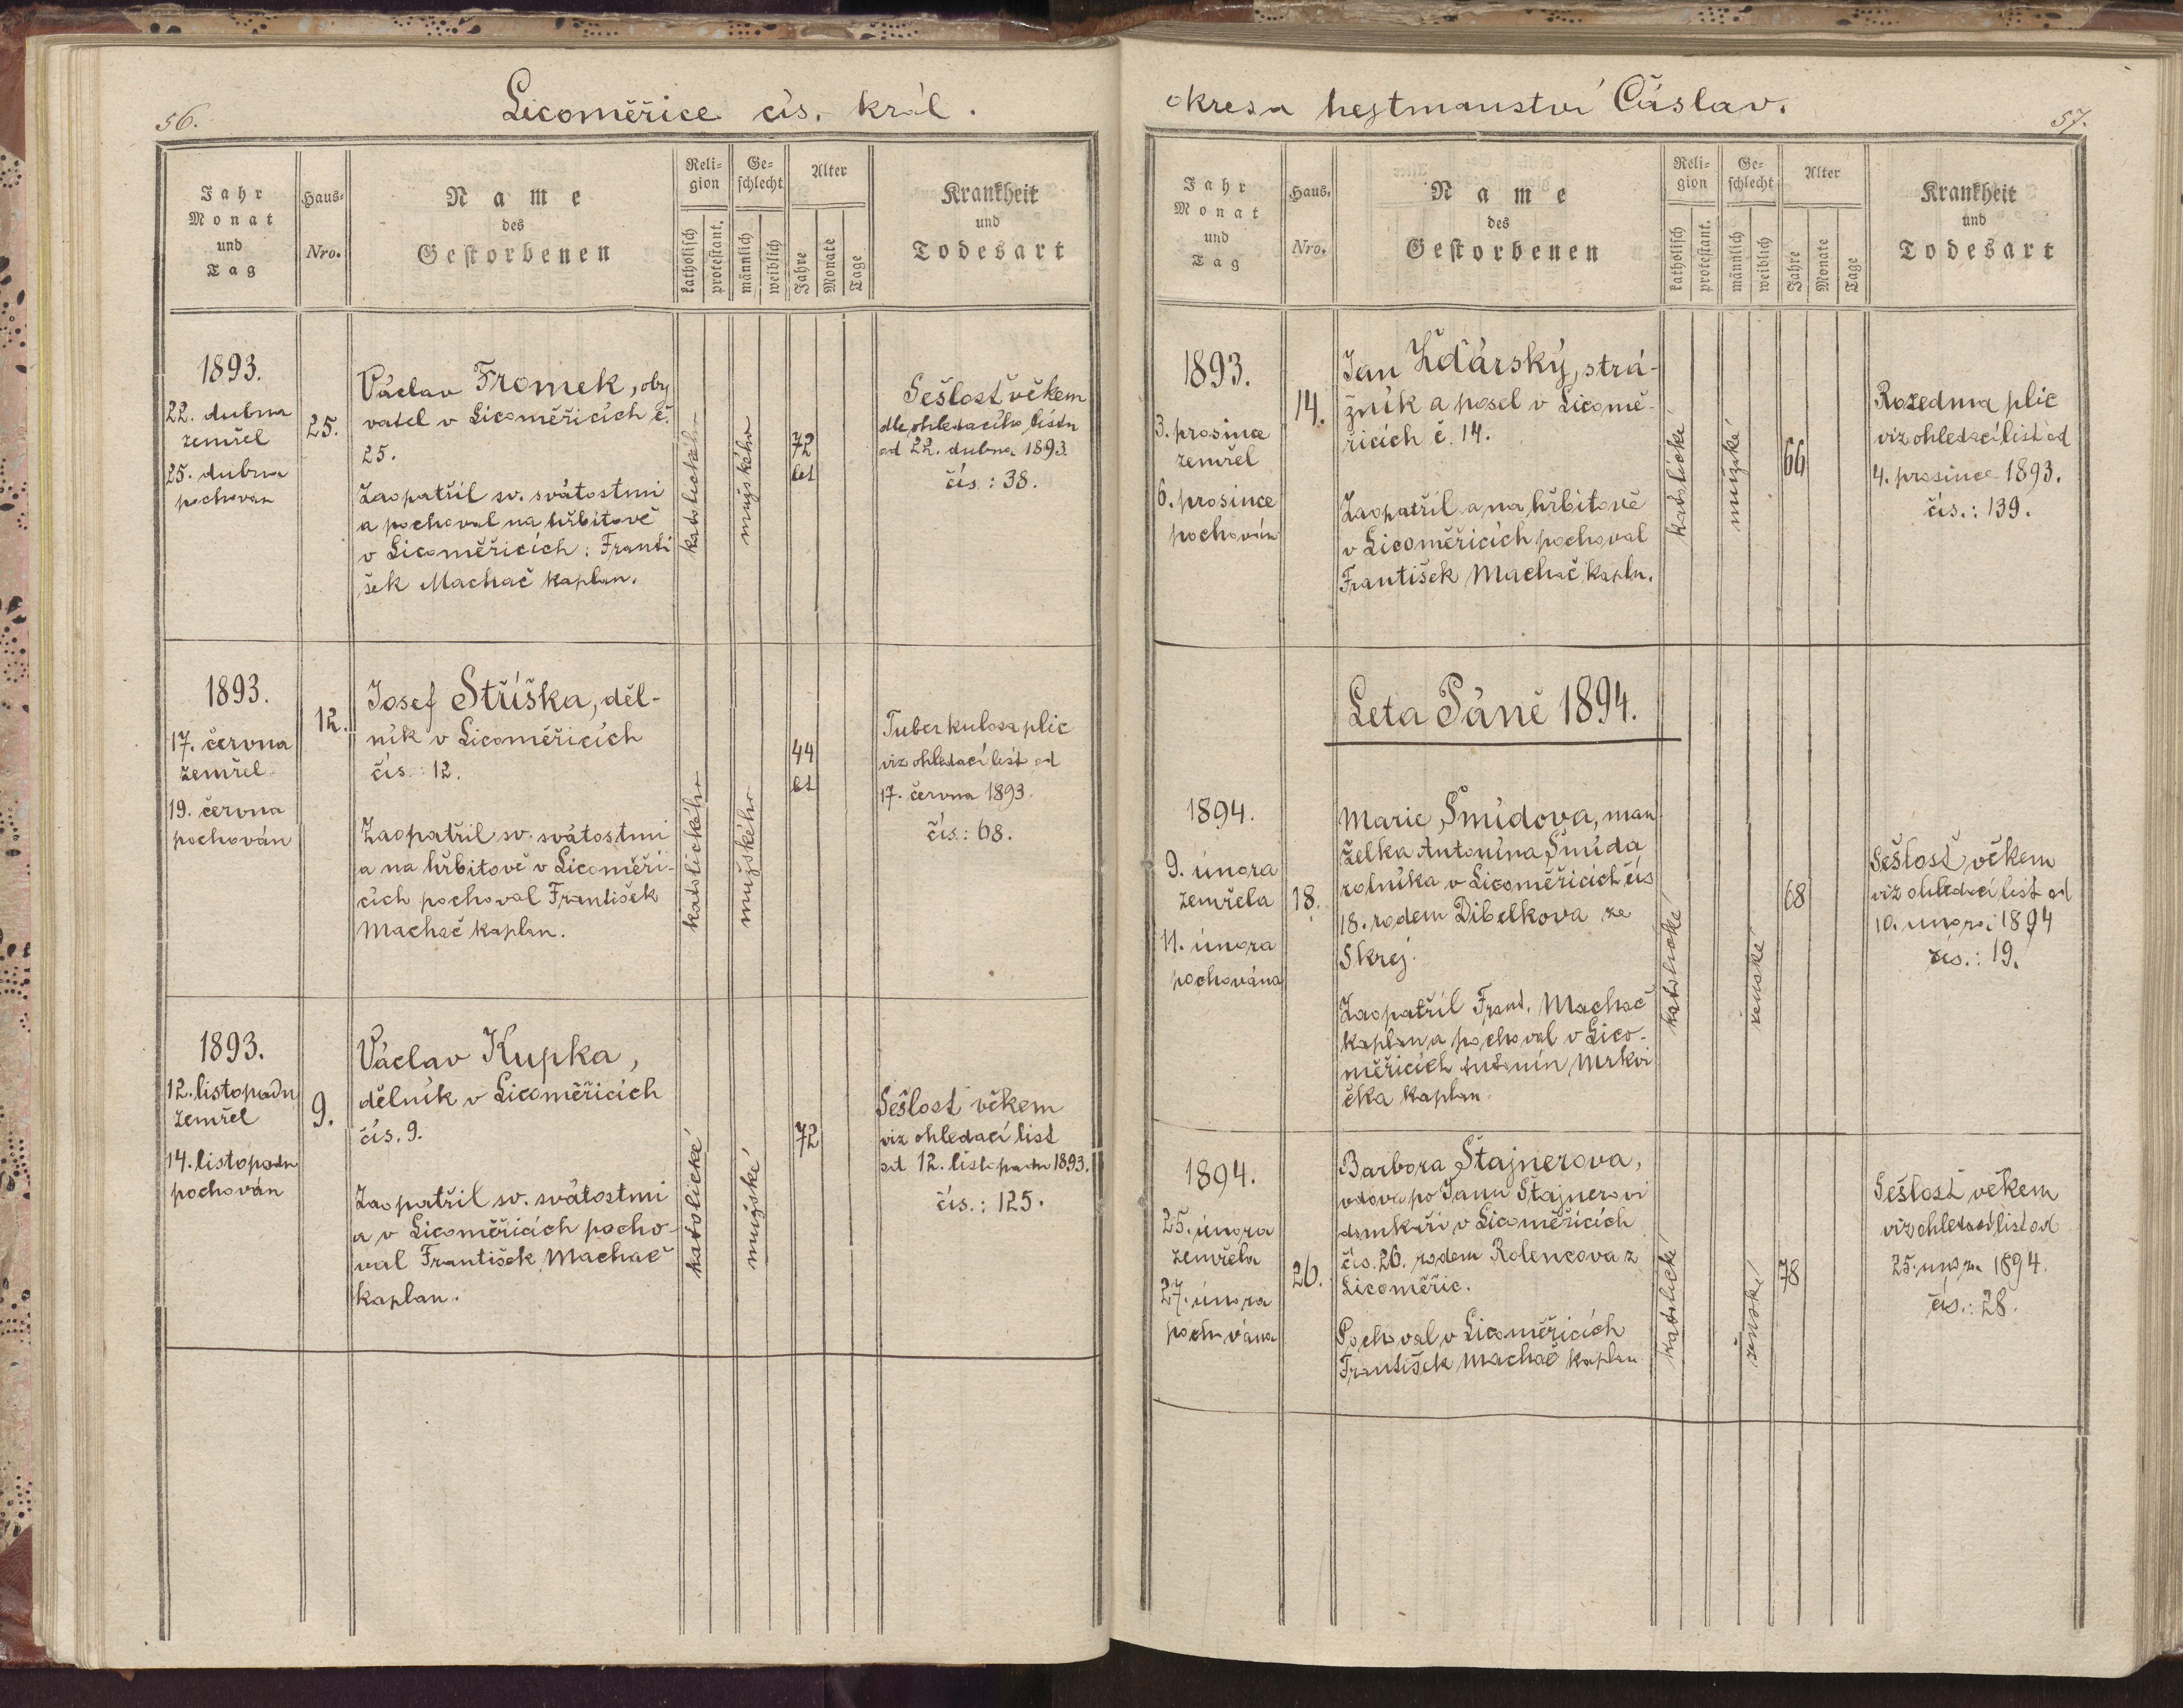 56.
Licoměřice cís. král.
Jahr
Monat
und
Tag
Haus-
Nro.
Name
des
Gestorbenen
Reli-
gion
katholisch
protestant.
Ge-
schlecht
männlich
weiblich
Alter
Jahre
Monate
Tage
Krankheit
und
Todesart
1893.
22. dubna
zemřel
25. dubna
pochován
25.
Václav Fromek, oby
vatel v Licoměřicích č.
25.
Zaopatřil sv. svátostmi
a pochoval na hřbitově
v Licoměřicích: Franti
šek Machač kaplan.
katolického
mužského
72
let
Sešlost věkem
dle ohledacího listu
od 22. dubna 1893.
čís.: 38.
1893.
17. června
zemřel
19. června
pochován
12.
Josef Stříška, děl-
ník v Licoměřicích
čís.: 12.
Zaopatřil sv. svátostmi
a na hřbitově v Licoměři-
cích pochoval František
Machač kaplan.
katolického
mužského
44
let
Tuberkulosa plic
viz ohledací list od
17. června 1893.
čís.: 68.
1893.
12. listopadu
zemřel
14. listopadu
pochován
9.
Václav Kupka,
dělník v Licoměřicích
čís. 9.
Zaopatřil sv. svátostmi
a v Licoměřicích pocho-
val František Machač
kaplan.
katolické
mužské
72
Sešlost věkem
viz ohledací list
od 12. listopadu 1893.
čís.: 125.
okresu hejtmanství Čáslav.
57.
Jahr
Monat
und
Tag
Haus-
Nro.
Name
des
Gestorbenen
Reli-
gion
katholisch
protestant.
Ge-
schlecht
männlich
weiblich
Alter
Jahre
Monate
Tage
Krankheit
und
Todesart
1893.
3. prosince
zemřel
6. prosince
pochován
14.
Jan Žďárský, strá-
žník a posel v Licomě-
řicích č. 14.
Zaopatřil a na hřbitově
v Licoměřicích pochoval
František Machač kapln.
katolické
mužské
66
Rozedma plic
viz ohledací list od
4. prosince 1893.
čís.: 139.
Leta Páně 1894.
1894.
9. února
zemřela
11. února
pochována
18.
Marie Šmídova, man
želka Antonína Šmída
rolníka v Licoměřicích čís
18. rodem Dibelkova ze
Skrej.
Zaopatřil Frant. Machač
kaplan a pochoval v Lico-
měřicích Antonín Mrkvi
čka kaplan.
katolické
ženské
68
Sešlost věkem
viz ohledací list od
10. února 1894
čís.: 19.
1894.
25. února
zemřela
27. února
pochována
26.
Barbora Štajnerova,
vdova po Janu Štajnerovi
domkáři v Licoměřicích
čís. 26. rodem Rolencova z
Licoměřic.
Pochoval v Licoměřicích
František Machač kaplan
katolické
ženské
78
Sešlost věkem
viz ohledací list od
25. února 1894.
čís.: 28.